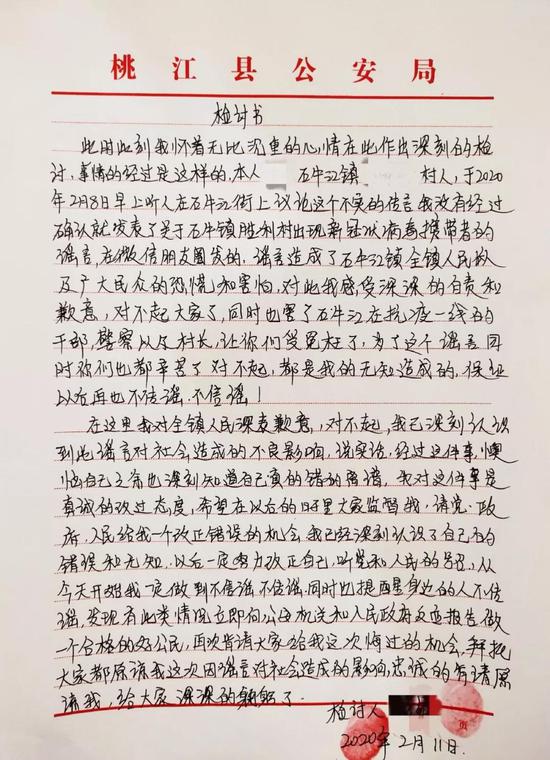 桃江县公安局
检讨书
此时此刻我怀着无比沉重的心情在此作出深刻的检
讨，事情的经过是这样的，本人 石牛江镇 村人，于2020
年2月8日早上听人在石牛江街上议论这个不实的传言我没有经过
确认就发表了关于石牛镇胜利村出现新冠状病毒携带者的
谣言，在微信朋友圈发的，谣言造成了石牛江镇全镇人民以
及广大民众的恐慌和害怕，对此我感受深深的自责和
歉意，对不起大家了，同时也害了石牛江在抗疫一线的
干部，警察以及村长，让你们受冤枉了，为了这个谣言同
时你们也都辛苦了 对不起，都是我的无知造成的，保证
以后再也不信谣 不信谣！
在这里我对全镇人民深表歉意，对不起，我已深刻认识
到此谣言对社会造成的不良影响，说实话，经过这件事，懊
恼自己之余也深刻知道自己真的错的离谱，我对这件事是
真诚的改过态度，希望在以后的日子里大家监督我，请党、政
府，人民给我一个改正错误的机会，我已经深刻认识了自己的
错误和无知，以后一定努力改正自己，听党和人民的号召，从
今天开始我一定做到不信谣不信谣，同时也提醒身边的人不信
谣，发现有此类情况立即向公安机关和人民政府反应报告 做
一个合格的好公民，再次肯请大家给我这次悔过的机会，并祝
大家都原谅我这次因谣言对社会造成的影响，忠诚的肯请原
谅我，给大家深深的鞠躬了．
检讨人
2020年2月11日．